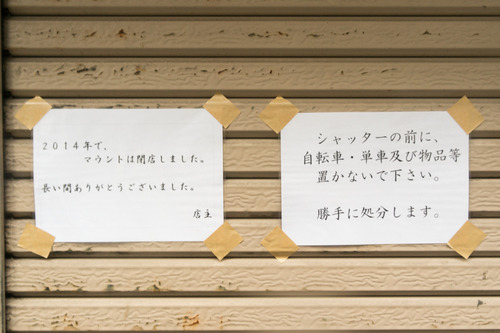 2014年で、
マウントは閉店しました。
長い間ありがとうございました。
店主
シャッターの前に、
自転車・単車及び物品等
置かないで下さい。
勝手に処分します。